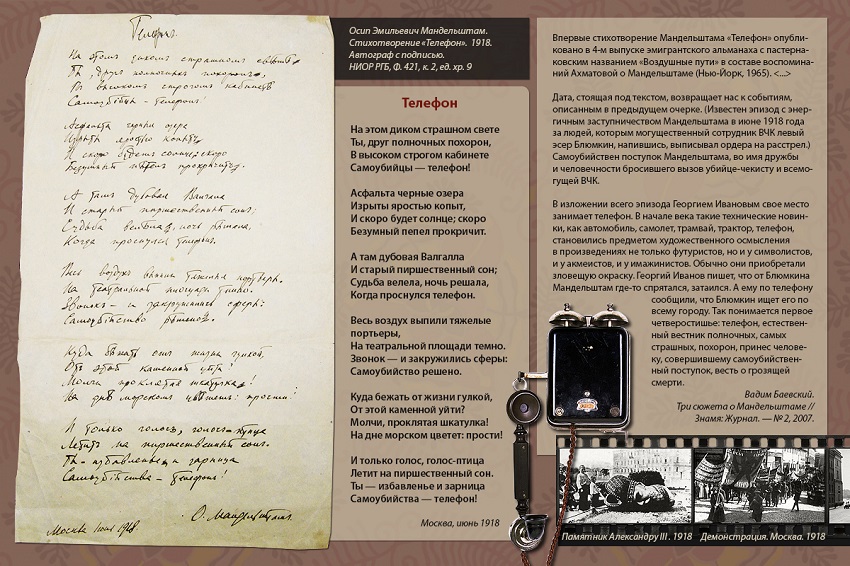 Телефон.
На этом диком страшном свете
Ты, друг полночных похорон,
В высоком строгом кабинете
Самоубийцы — телефон!
Асфальта черные озера
Изрыты яростью копыт,
И скоро будет солнце: скоро
Безумный петел прокричит.
А там дубовая Валгалла
И старый пиршественный сон:
Судьба велела, ночь решала,
Когда проснулся телефон.
Весь воздух выпили тяжелые портьеры,
На театральной площади темно.
Звонок — и закружились сферы:
Самоубийство решено.
Куда бежать от жизни гулкой,
От этой каменной уйти?
Молчи, проклятая шкатулка!
На дне морском цветет: прости!
И только голос, голос-птица
Летит на пиршественный сон.
Ты — избавленье и зарница
Самоубийства — телефон!
О. Мандельштам.
Москва июнь 1918.
Осип Эмильевич Мандельштам.
Стихотворение «Телефон». 1918.
Автограф с подписью.
НИОР РГБ, Ф. 421, к. 2, ед. хр. 9
Телефон
На этом диком страшном свете
Ты, друг полночных похорон,
В высоком строгом кабинете
Самоубийцы — телефон!
Асфальта черные озера
Изрыты яростью копыт,
И скоро будет солнце; скоро
Безумный пепел прокричит.
А там дубовая Валгалла
И старый пиршественный сон;
Судьба велела, ночь решала,
Когда проснулся телефон.
Весь воздух выпили тяжелые
портьеры,
На театральной площади темно.
Звонок — и закружились сферы:
Самоубийство решено.
Куда бежать от жизни гулкой,
От этой каменной уйти?
Молчи, проклятая шкатулка!
На дне морском цветет: прости!
И только голос, голос-птица
Летит на пиршественный сон.
Ты — избавленье и зарница
Самоубийства — телефон!
Москва, июнь 1918
Впервые стихотворение Мандельштама «Телефон» опубли-
ковано в 4-м выпуске эмигрантского альманаха с пастерна-
ковским названием «Воздушные пути» в составе воспомина-
ний Ахматовой о Мандельштаме (Нью-Йорк, 1965). <...>
Дата, стоящая под текстом, возвращает нас к событиям,
описанным в предыдущем очерке. (Известен эпизод с энер-
гичным заступничеством Мандельштама в июне 1918 года
за людей, которым могущественный сотрудник ВЧК левый
эсер Блюмкин, напившись, выписывал ордера на расстрел.)
Самоубийствен поступок Мандельштама, во имя дружбы
и человечности бросившего вызов убийце-чекисту и всемо-
гущей ВЧК.
В изложении всего эпизода Георгием Ивановым свое место
занимает телефон. В начале века такие технические новин-
ки, как автомобиль, самолет, трамвай, трактор, телефон,
становились предметом художественного осмысления
в произведениях не только футуристов, но и у символистов,
и у акмеистов, и у имажинистов. Обычно они приобретали
зловещую окраску. Георгий Иванов пишет, что от Блюмкина
Мандельштам где-то спрятался, затаился. А ему по телефону
сообщили, что Блюмкин ищет его по
всему городу. Так понимается первое
четверостишье: телефон, естествен-
ный вестник полночных, самых
страшных, похорон, принес челове-
ку, совершившему самоубийствен-
ный поступок, весть о грозящей
смерти.
Вадим Баевский.
Три сюжета о Мандельштаме //
Знамя: Журнал. — № 2, 2007.
Памятник Александру III. 1918 Демонстрация. Москва. 1918